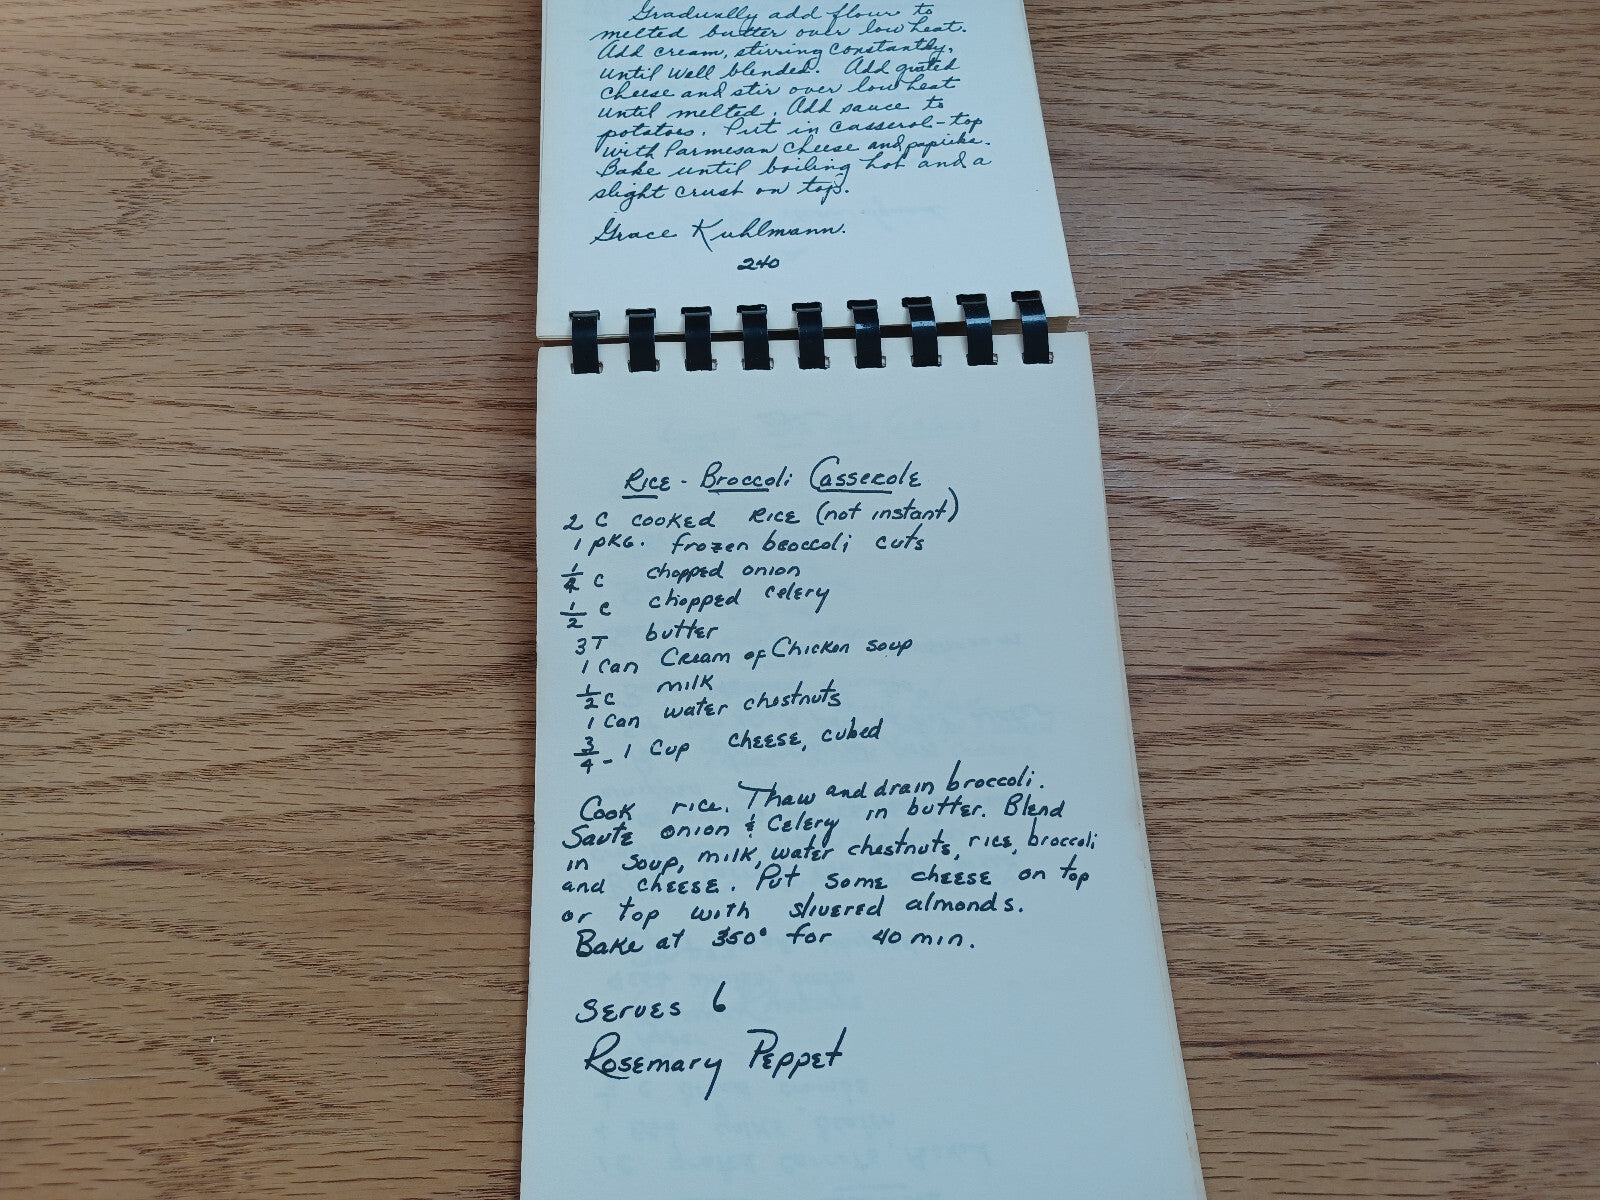 Gradually add flour to
melted butter over low heat.
Add cream, stirring constantly,
until well blended. Add grated
cheese and stir over low heat
until melted. Add sauce to
potatoes. Put in casserol-top
with Parmesan cheese and paprika.
Bake until boiling hot and a
slight crust on top.
Grace Kuhlmann.
240
Rice - Broccoli Casserole
2 C cooked rice (not instant)
1 pkg. frozen broccoli cuts
1/4 c chopped onion
1/2 c chopped celery
3 T butter
1 can Cream of Chicken soup
1/2 c milk
1 can water chestnuts
3/4 - 1 cup cheese, cubed
Cook rice. Thaw and drain broccoli.
Saute onion & celery in butter. Blend
in soup, milk, water chestnuts, rice, broccoli
and cheese. Put some cheese on top
or top with slivered almonds.
Bake at 350° for 40 min.
Serves 6
Rosemary Peppet